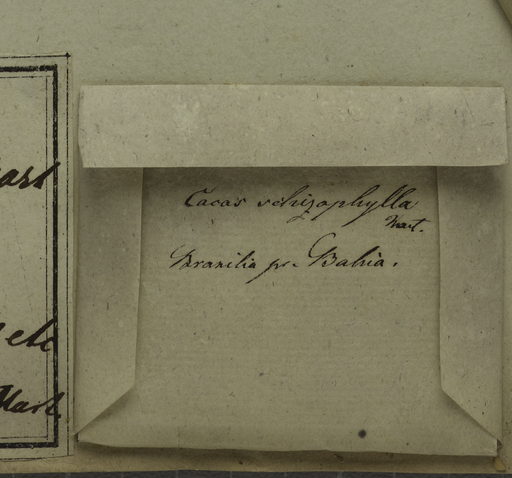 Cocos schizophylla
Mart.
Brasilia pr. Bahia.
etc
Mart.